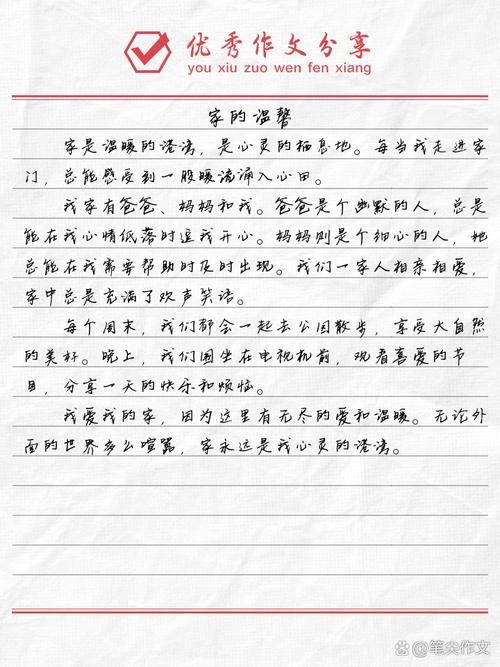 优秀作文分享
you xiu zuo wen fen xiang
家的温馨
家是温暖的港湾，是心灵的栖息地。每当我走进家
门，总能感受到一股暖流涌入心田。
我家有爸爸、妈妈和我。爸爸是个幽默的人，总是
能在我心情低落时逗我开心。妈妈则是个细心的人，她
总能在我需要帮助时及时出现。我们一家人相亲相爱，
家中总是充满了欢声笑语。
每个周末，我们都会一起去公园散步，享受大自然
的美好。晚上，我们围坐在电视机前，观看喜爱的节
目，分享一天的快乐和烦恼。
我爱我的家，因为这里有无尽的爱和温暖。无论外
面的世界多么喧嚣，家永远是我心灵的港湾。
@笔尖作文